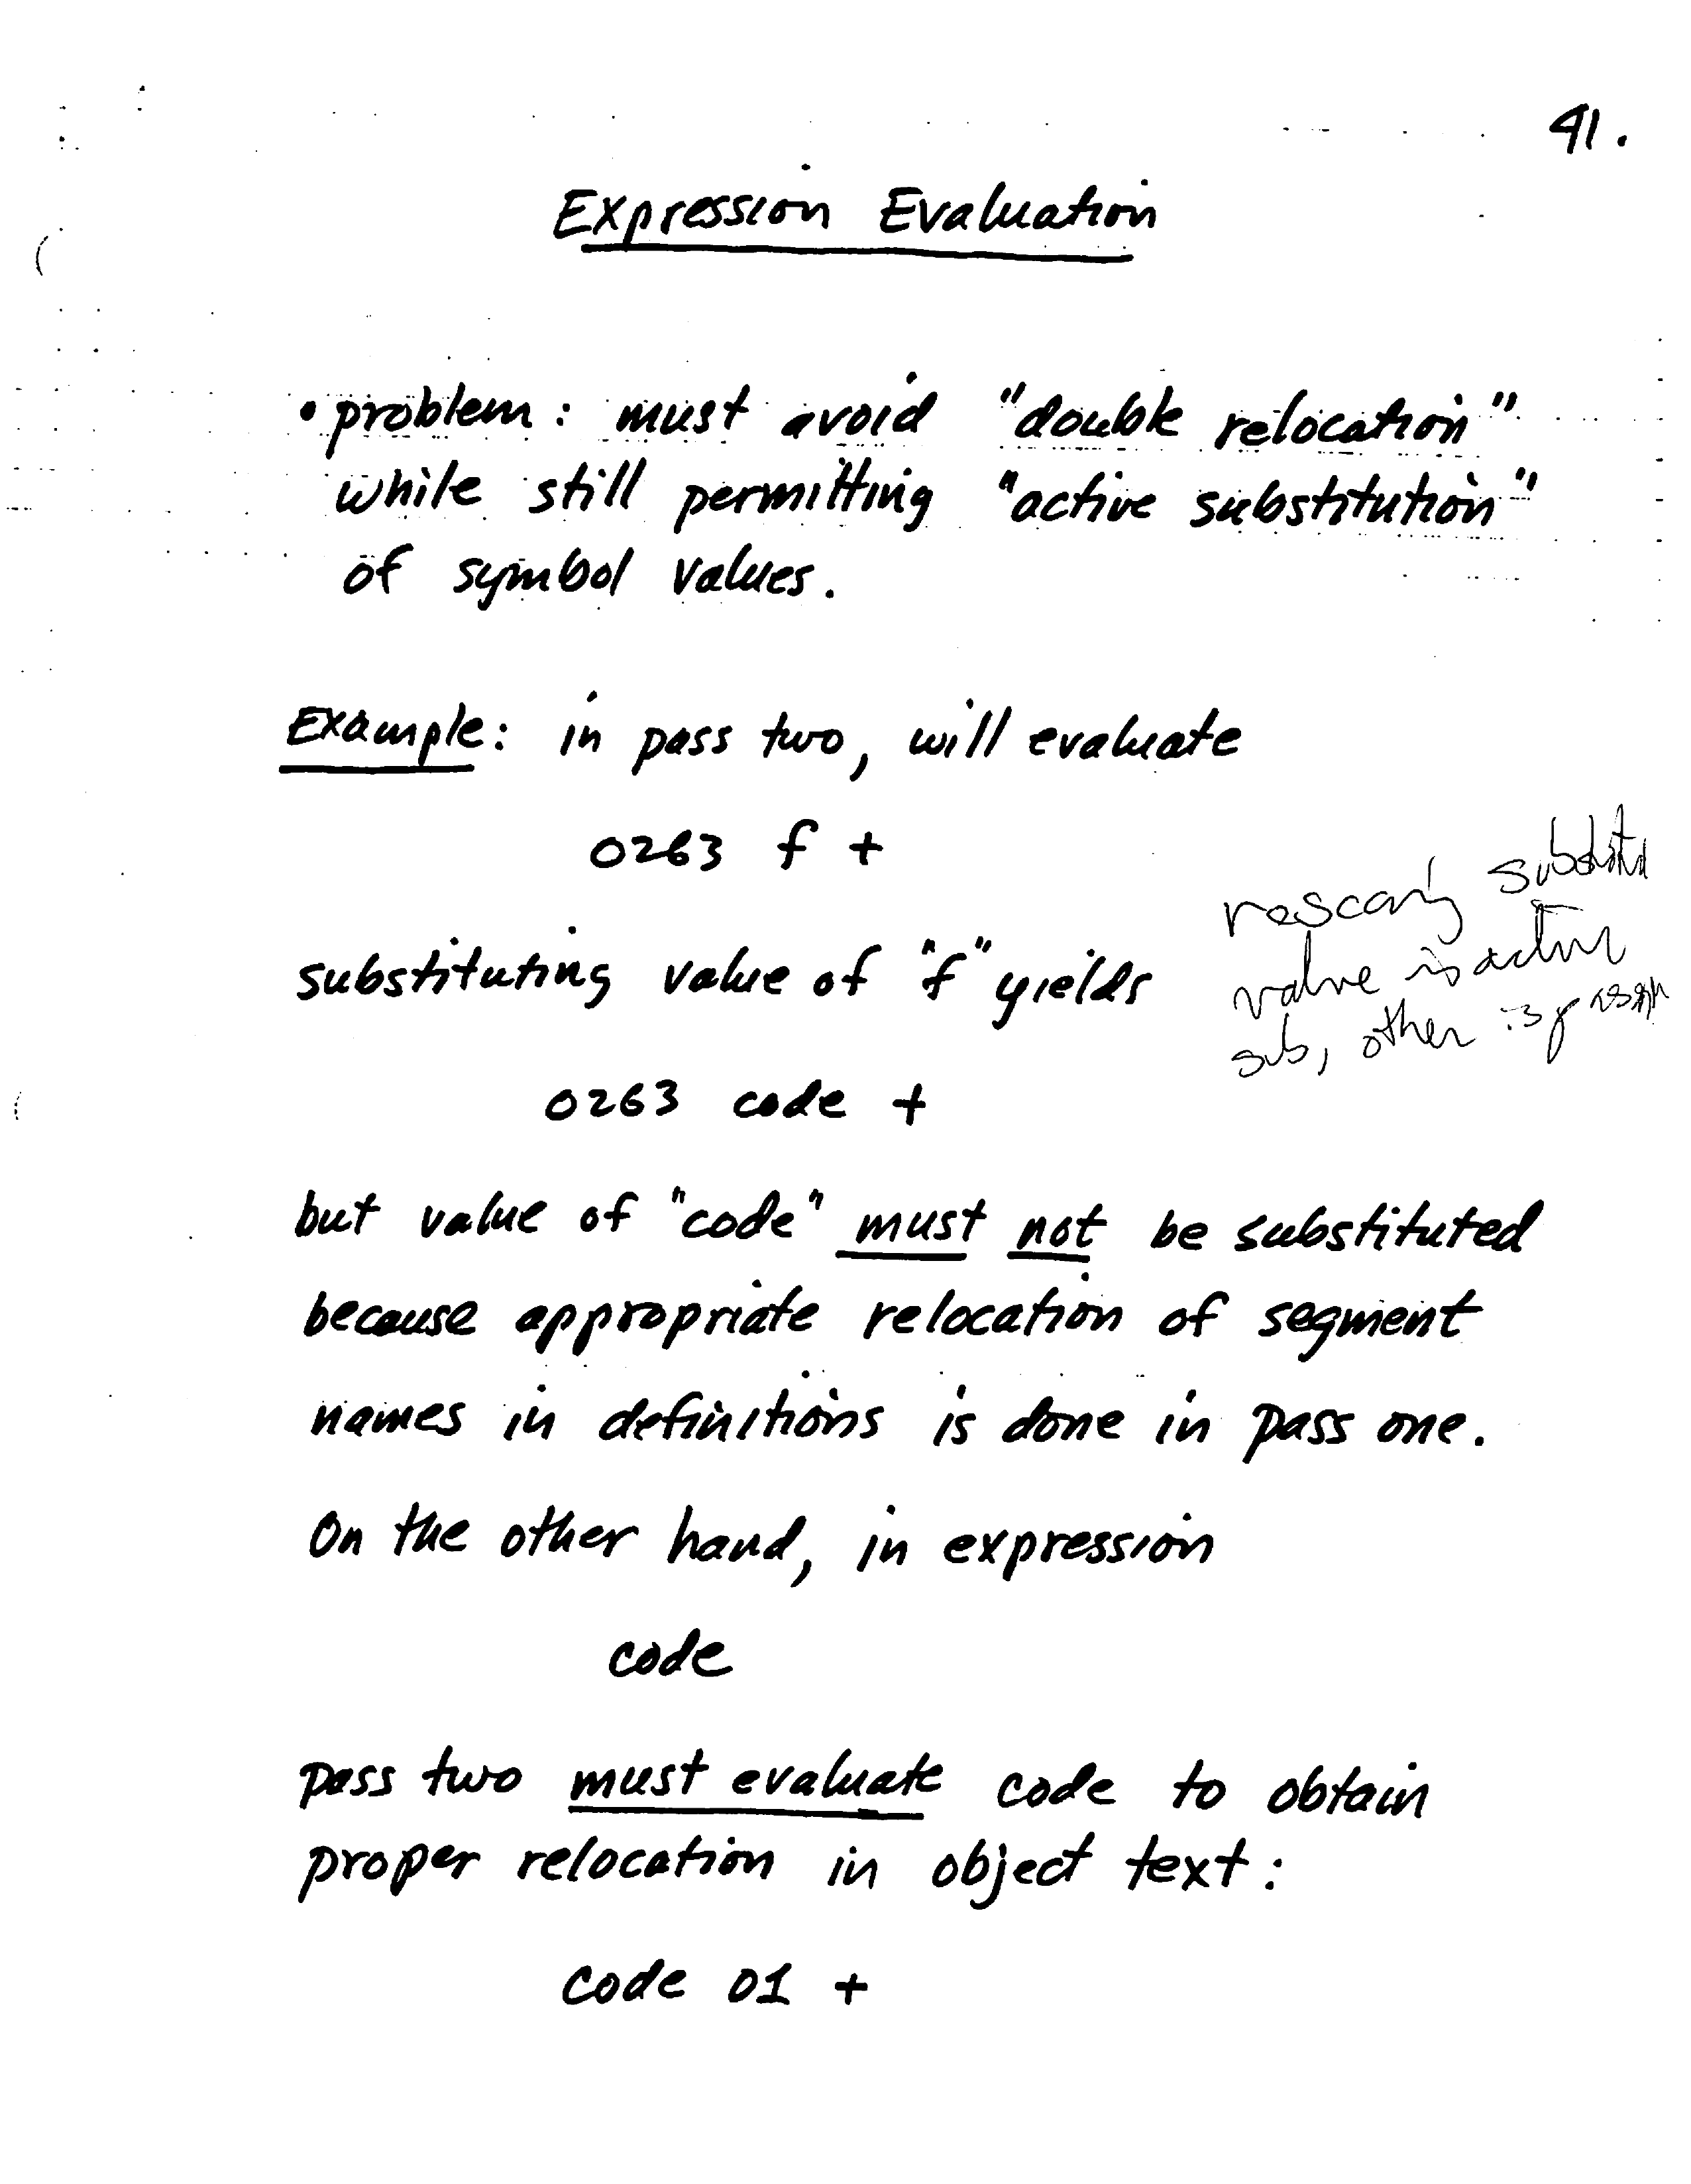 41.
Expression Evaluation
• problem: must avoid "double relocation"
while still permitting "active substitution"
of symbol values.
Example: in pass two, will evaluate
0263 f +
substituting value of "f" yields
rescang
value is active
sub, other is
0263 code +
but value of "code" must not be substituted
because appropriate relocation of segment
names in definitions is done in pass one.
On the other hand, in expression
code
pass two must evaluate code to obtain
proper relocation in object text:
code 01 +